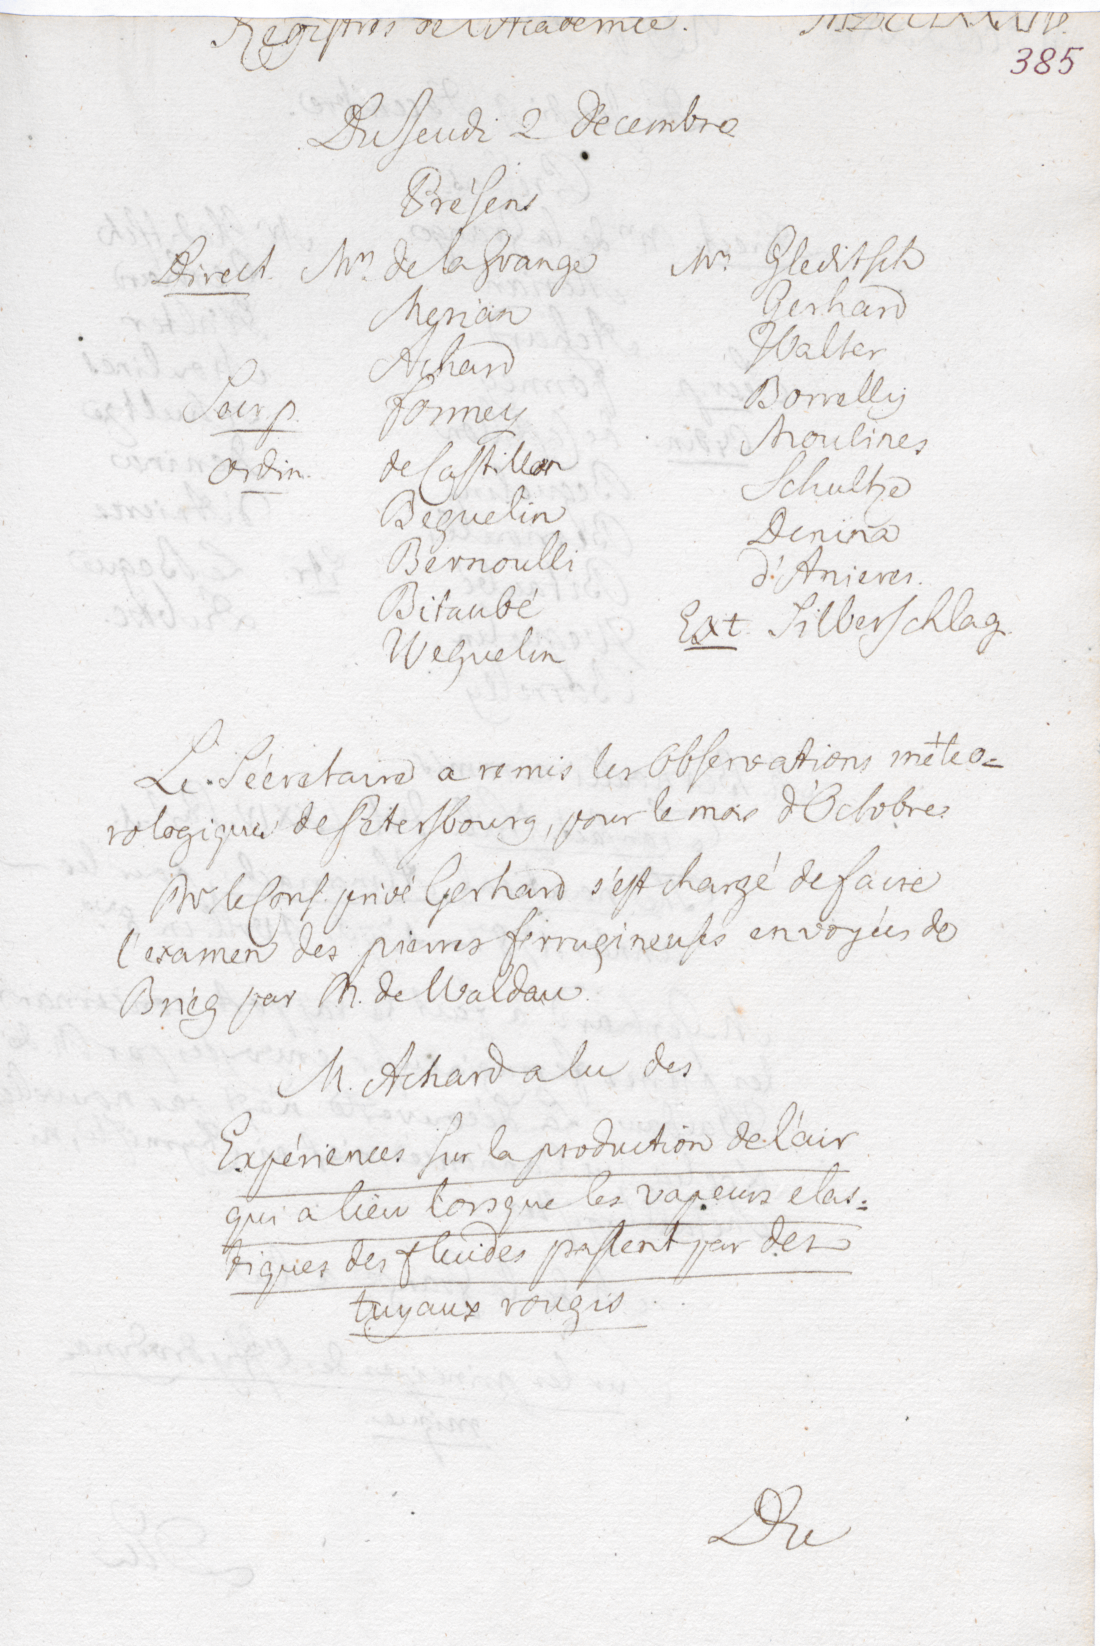 Régistres de l'Academie. MDCCLXXXIV.
385
Du Jeudi 2 Décembre
Présens
Direct. Mrs de la Grange
Merian
Achard
Secr. p. Formey
Ordin. de Castillon
Beguelin
Bernoulli
Bitaubé
Weguelin
Mrs Gleditsch
Gerhard
Walter
Borrelly
Moulines
Schultze
Denina
d'Anieres.
Ext. Silberschlag
Le Sécretaire a remis les Observations météo=
rologiques de Pétersbourg, pour le mois d'Octobre
Mr le Cons. privé Gerhard s'est chargé de faire
l'examen des pierres ferrugineuses envoyées de
Brieg par M. de Waldau.
M. Achard a lu des
Expériences sur la production de l'air
qui a lieu lorsque les vapeurs elas=
tiques des fluides passent par des
tuyaux rougis.
Du